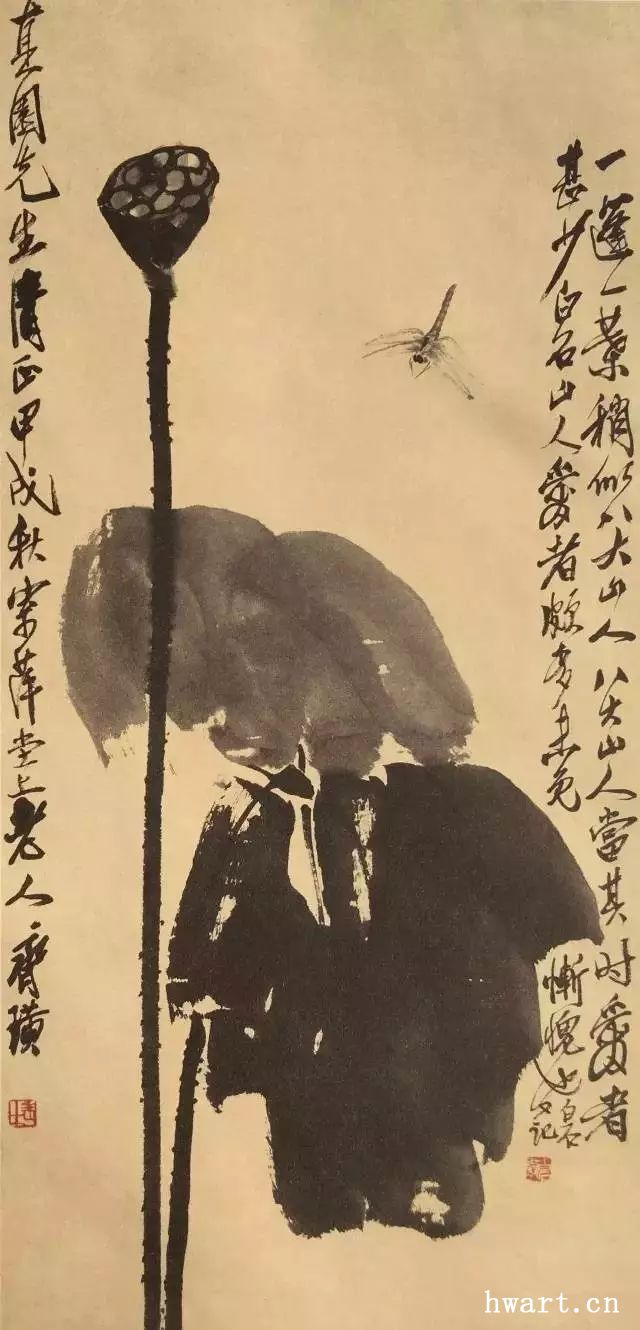 一蓬一葉稍似八大山人八大山人當其时愛者
甚少白石山人愛者頗多未免
慚愧也白石又記
園先生清正甲戌秋寄萍堂上老人齊璜
hwart.cn